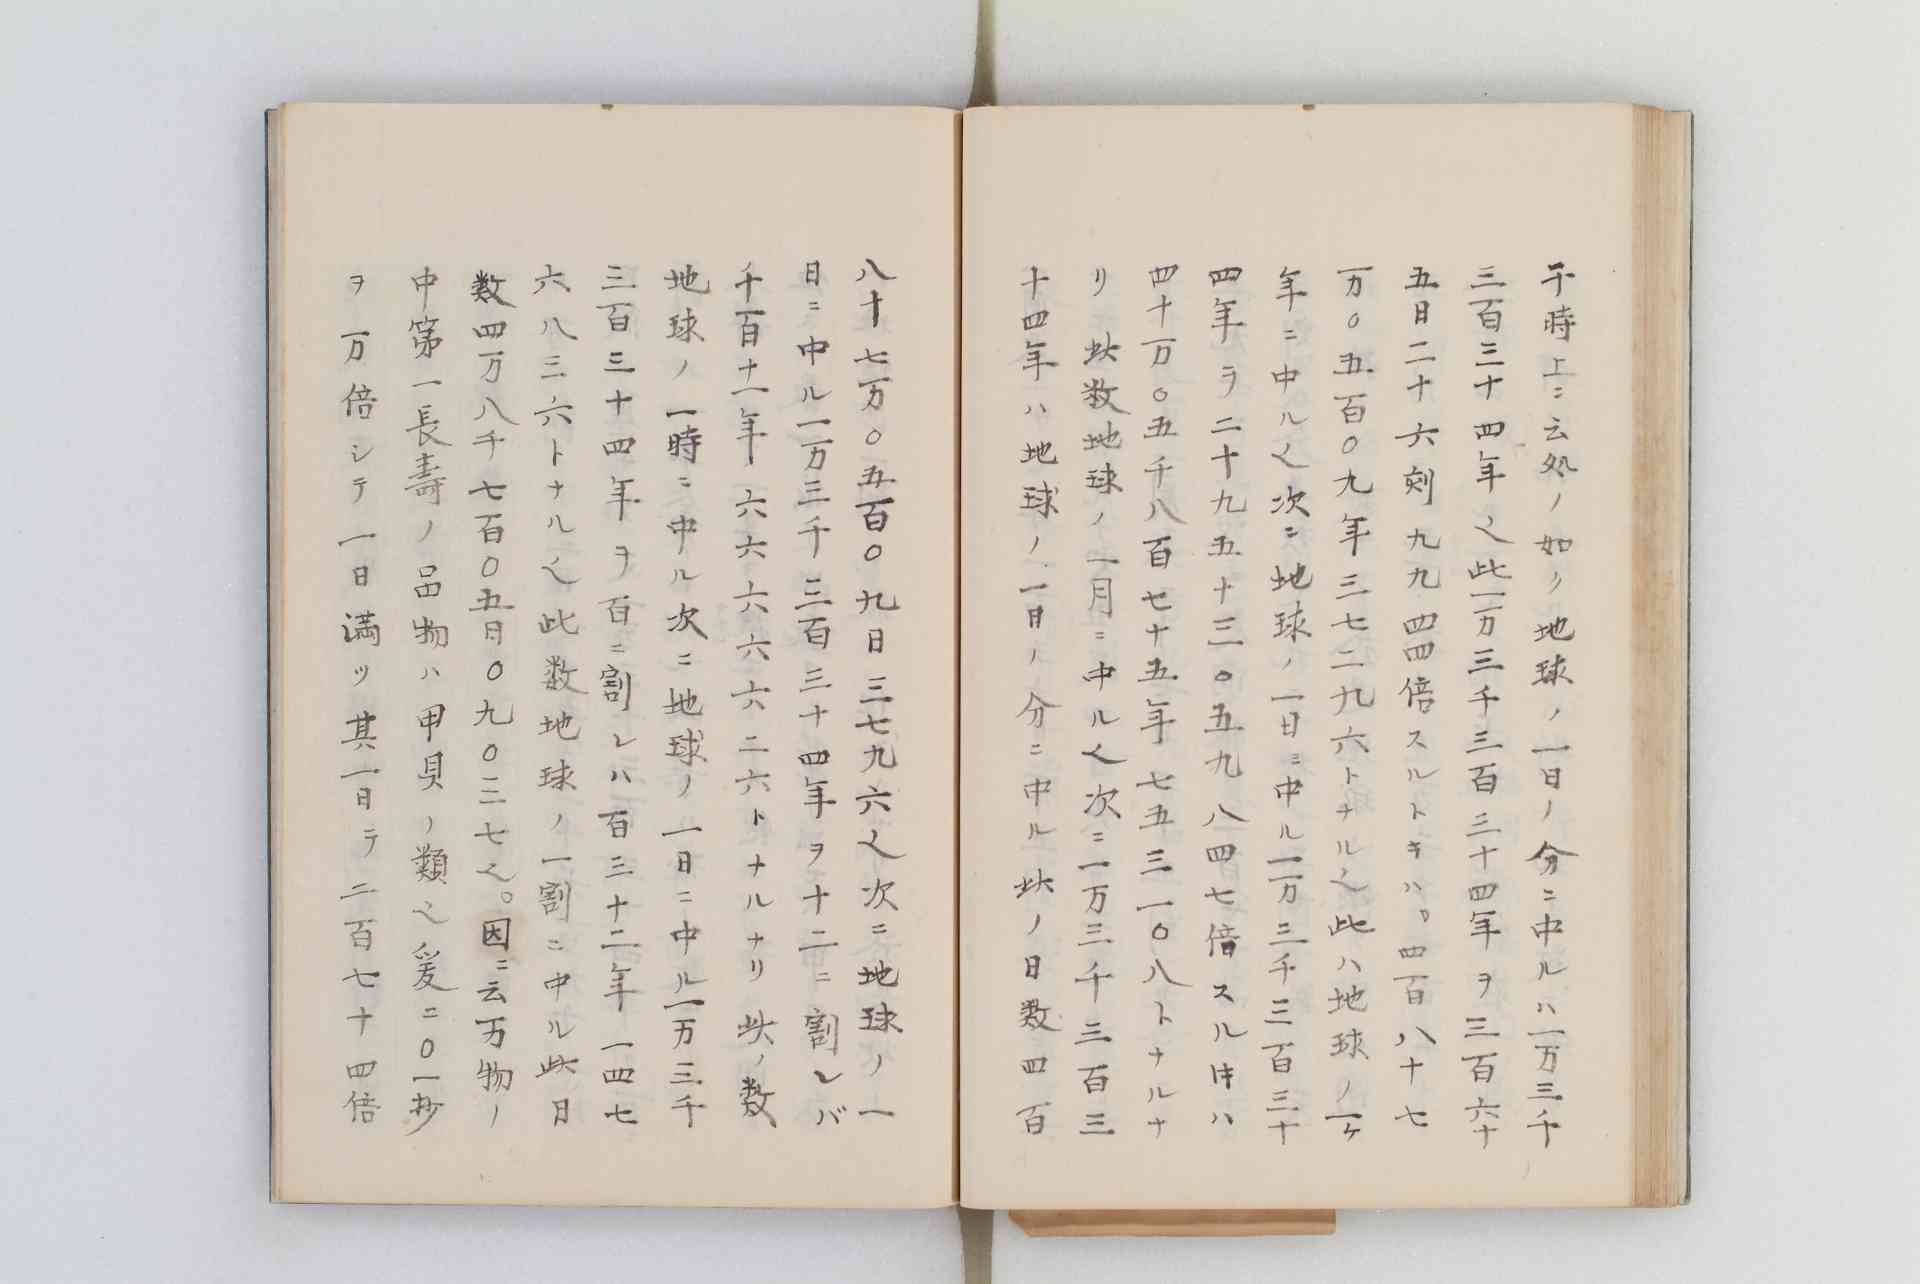 于時上ニ云処ノ如ク地球ノ一日ノ分ニ中ルハ一万三千
三百三十四年〱此一万三千三百三十四年ヲ三百六十
五日二十六刻九九四四倍スルトキハ。四百八十七
万〇五百〇九年三七二九六トナル〱此ハ地球ノ一ケ
年ニ中ル〱次ニ地球ノ一日ニ中ル一万三千三百三十
四年ヲ二十九五十三〇五九八四七倍スル時ハ
四十万〇五千八百七十五年七五三一〇八トナルナ
リ此数地球ノ一月ニ中ル〱次ニ一万三千三百三
十四年ハ地球ノ一日ノ分ニ中ル此ノ日数四百
八十七万〇五百〇九日三七九六〱次ニ地球ノ一
日ニ中ル一万三千三百三十四年ヲ十二ニ割レバ
千百十一年六六六六六二六トナルナリ此ノ数
地球ノ一時ニ中ル次ニ地球ノ一日ニ中ル一万三千
三百三十四年ヲ百ニ割レハ百三十二年一四七
六八三六トナル〱此数地球ノ一割ニ中ル此日
数四万八千七百〇五日〇九〇三七〱。因ニ云万物ノ
中第一長壽ノ品物ハ甲貝ノ類〱爰ニ〇一抄
ヲ万倍シテ一日満ツ其一日テ二百七十四倍